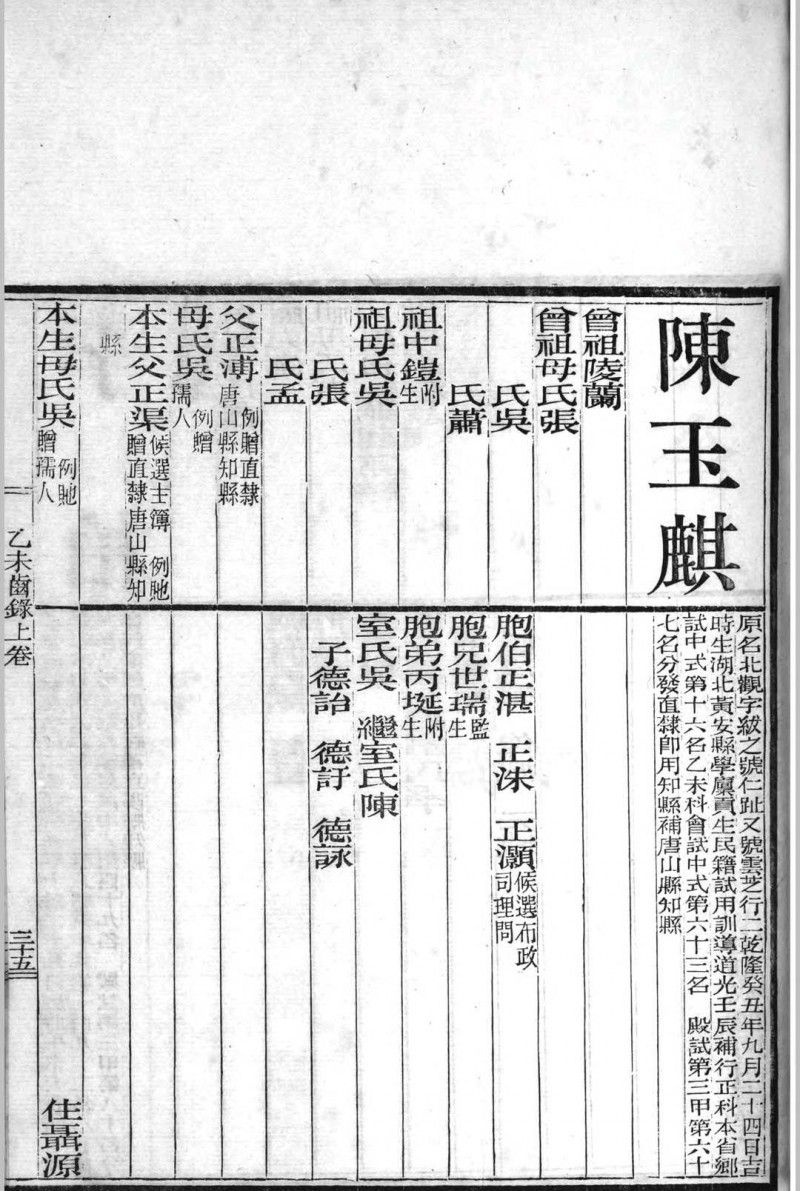 陳玉麒
原名北觀字紱之號仁趾又號雲芝行二乾隆癸丑年九月二十四日吉
時生湖北黃安縣學廩貢生民籍試用訓導道光壬辰補行正科本省鄉
試中式第十六名乙未科會試中式第六十三名 殿試第三甲第六十
七名分發直隸卽用知縣補唐山縣知縣
曾祖陵蘭
曾祖母氏張
氏吳
氏蕭
祖中鎧附生
祖母氏吳
氏張
氏孟
父正溥例贈直隸唐山縣知縣
母氏吳例贈孺人
本生父正渠候選主簿 例貤贈直隸唐山縣知
縣
本生母氏吳例貤贈孺人
胞伯正湛 正洙 正灝候選布政司理問
胞兄世瑞監生
胞弟丙埏附生
室氏吳 繼室氏陳
子德詒 德訏 德詠
住聶源
乙未齒錄上卷
三十五